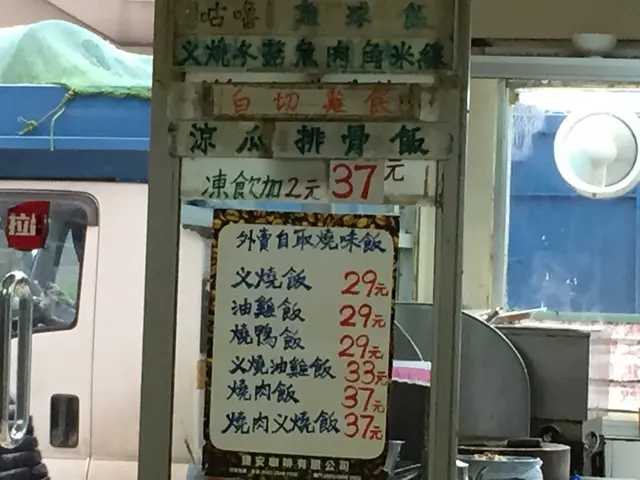 咕嚕雞球飯
叉燒冬菇魚肉魚米線
白切雞飯
涼瓜排骨飯
凍飲加2元 37元
拉
外賣自取燒味飯
叉燒飯 29元
油雞飯 29元
燒鴨飯 29元
叉燒油雞飯 33元
燒肉飯 37元
燒肉叉燒飯 37元
咖啡有限公司